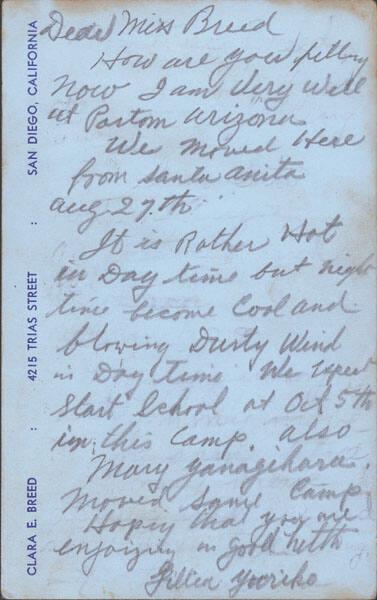 Dear Miss Breed
How are you felling
now I am Very Well
at Postom Arizona
We moved Here
from Santa anita
aug 27th
It is Rather Hot
in Day time but night
time become Cool and
blowing Dusty Wind
in Day time We Expect
Start School at Oct 5th
in this Camp. also
Mary Yanagihara.
moved same Camp.
Hoping that you are
enjoying in good helth
Yuriko
CLARA E. BREED : 4215 TRIAS STREET : SAN DIEGO, CALIFORNIA